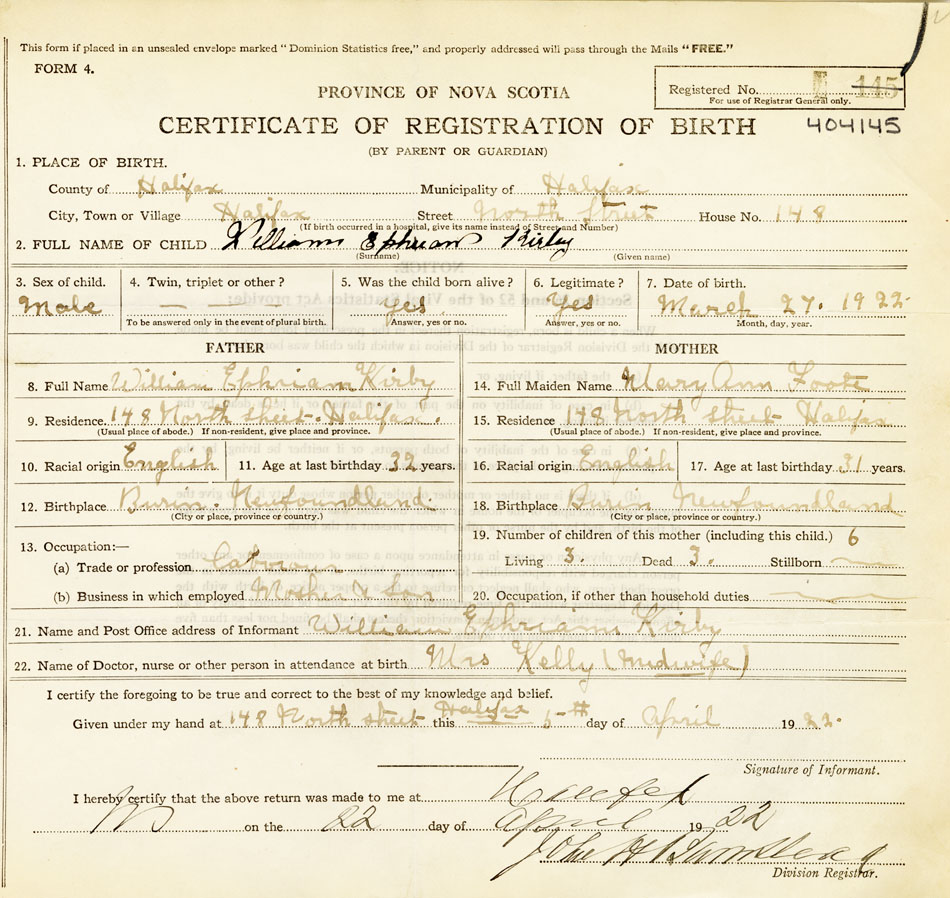 This form if placed in an unsealed envelope marked "Dominion Statistics free," and properly addressed will pass through the Mails "FREE."
FORM 4.
Registered No. 145
For use of Registrar General only.
PROVINCE OF NOVA SCOTIA
CERTIFICATE OF REGISTRATION OF BIRTH 404145
(BY PARENT OR GUARDIAN)
1. PLACE OF BIRTH.
County of Halifax Municipality of Halifax
City, Town or Village Halifax Street North Street House No. 148
(If birth occurred in a hospital, give its name instead of Street and Number)
2. FULL NAME OF CHILD William Ephriam Kirby
(Surname) (Given name)
3. Sex of child. 4. Twin, triplet or other? 5. Was the child born alive? 6. Legitimate? 7. Date of birth.
Male — — — Yes Yes March 27. 1922
To be answered only in the event of plural birth. Answer, yes or no. Answer, yes or no. Month, day, year.
FATHER MOTHER
8. Full Name William Ephriam Kirby 14. Full Maiden Name Mary Ann Foote
9. Residence 148 North street. Halifax. 15. Residence 148 North street Halifax
(Usual place of abode.) If non-resident, give place and province. (Usual place of abode.) If non-resident, give place and province.
10. Racial origin English 11. Age at last birthday 32 years. 16. Racial origin English 17. Age at last birthday 31 years.
12. Birthplace Burin. Newfoundland 18. Birthplace Burin Newfoundland
(City or place, province or country.) (City or place, province or country.)
19. Number of children of this mother (including this child.) 6
13. Occupation:—
Living 3. Dead 3. Stillborn —
(a) Trade or profession Labourer
(b) Business in which employed Mosher & Son 20. Occupation, if other than household duties —
21. Name and Post Office address of Informant William Ephriam Kirby
22. Name of Doctor, nurse or other person in attendance at birth Mrs Kelly (midwife)
I certify the foregoing to be true and correct to the best of my knowledge and belief.
Given under my hand at 148 North street Halifax this 5th day of April 1922.
Signature of Informant.
I hereby certify that the above return was made to me at Halifax
NS on the 22 day of April 1922
John H
Division Registrar.